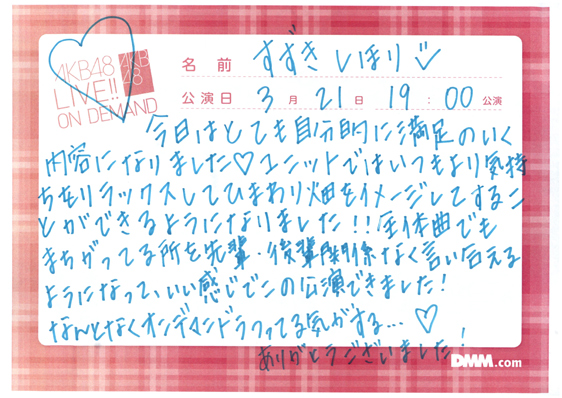 AKB48
LIVE!!
ON DEMAND
AKB
48
名前 すずきしほり♡
公演日 3月21日 19:00公演
今日はとても自分的に満足のいく
内容になりました♡ユニットではいつもより気持
ちをリラックスしてひまわり畑をイメージしてするこ
とができるようになりました!!全体曲でも
まちがってる所を先輩・後輩関係なく言い合える
ようになって、いい感じでこの公演できました!
なんとなくオンデマンドラフってる気がする...♡
ありがとうございました!
DMM.com